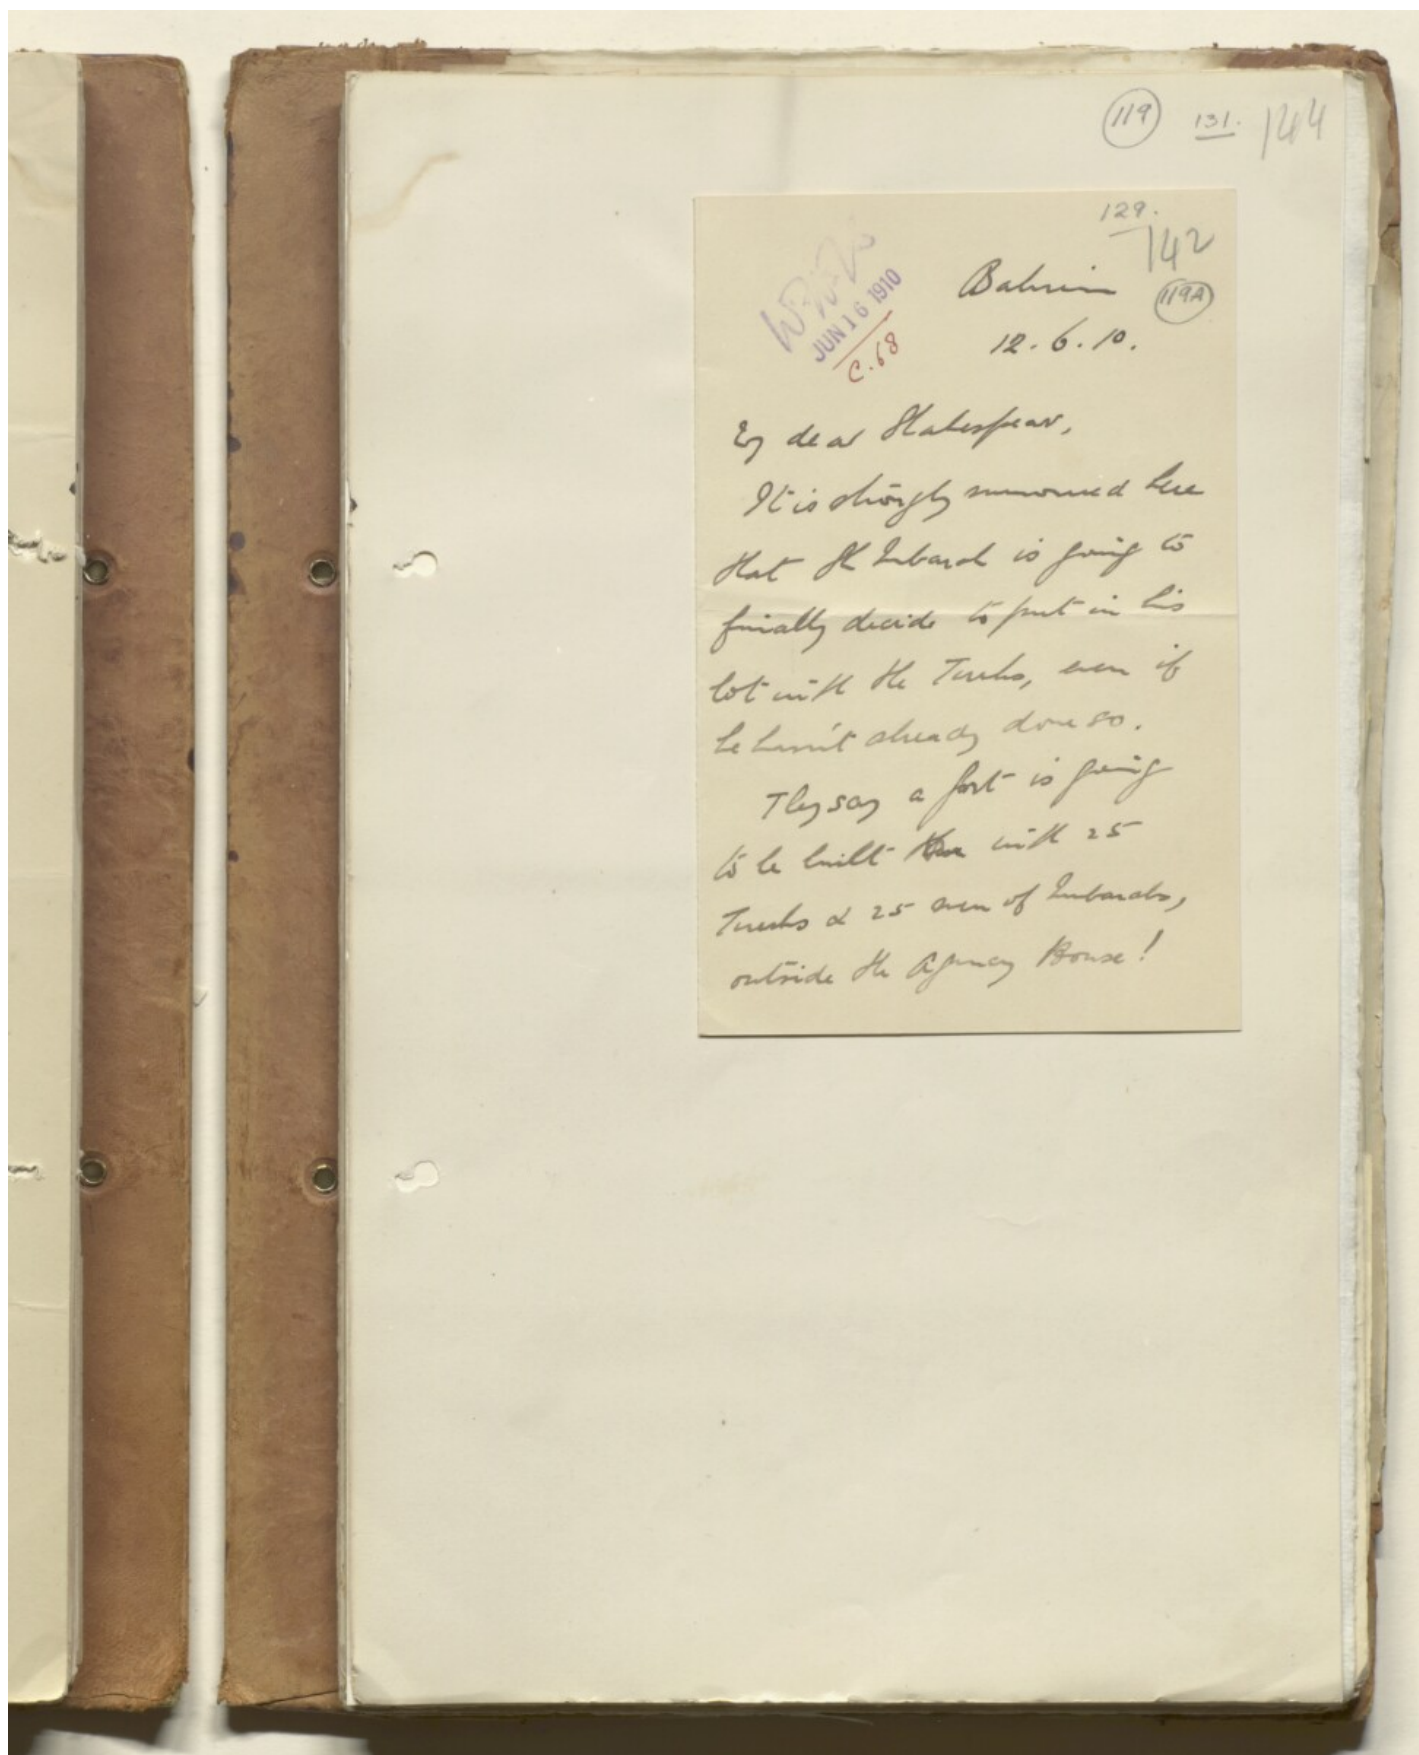 119
131.
144
129.
142
119A
JUN 16 1910
C.68
Bahrein
12.6.10.
My dear Shakespear,
It is strongly rumoured here
that Sh Mubarak is going to
finally decide to put in his
lot with the Turks, even if
he hasn't already done so.
They say a fort is going
to be built with 25
Turks & 25 men of Mubaraks,
outside the Agency House!